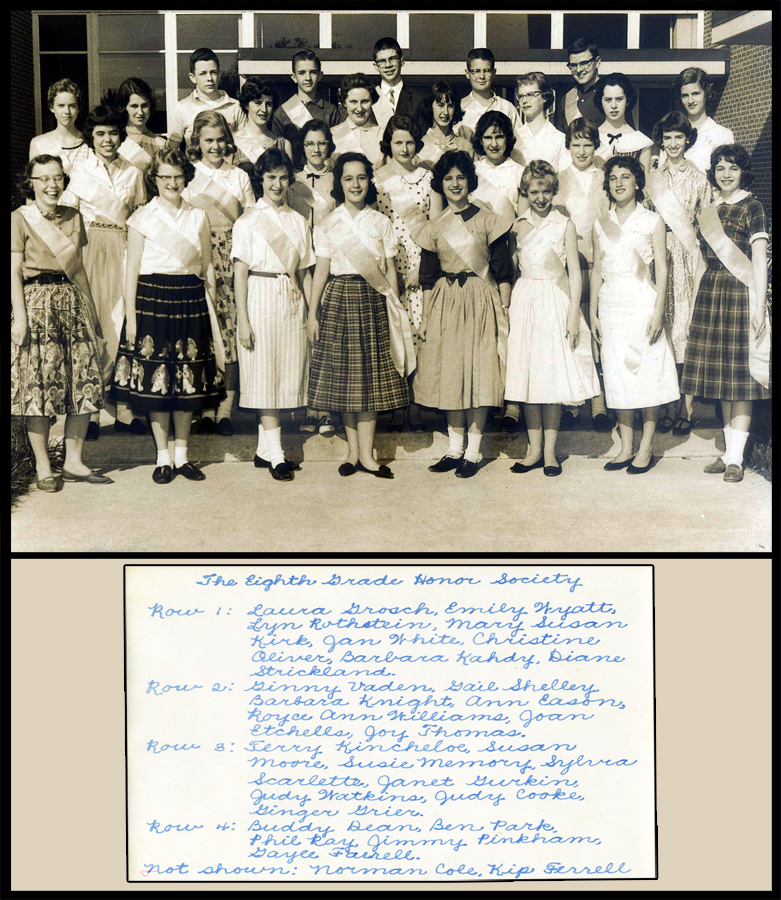 The Eighth Grade Honor Society
Row 1: Laura Grosch, Emily Wyatt,
Lyn Rothstein, Mary Susan
Kirk, Jan White, Christine
Oliver, Barbara Kahdy, Diane
Strickland.
Row 2: Ginny Vaden, Gail Shelley
Barbara Knight, Ann Eason,
Royce Ann Williams, Joan
Etchells, Joy Thomas.
Row 3: Terry Kincheloe, Susan
Moore, Susie Memory, Sylvia
Scarlette, Janet Gurkin,
Judy Watkins, Judy Cooke,
Ginger Grier.
Row 4: Buddy Dean, Ben Park,
Phil Ray, Jimmy Pinkham,
Gayle Farrell.
Not shown: Norman Cole, Kip Ferrell